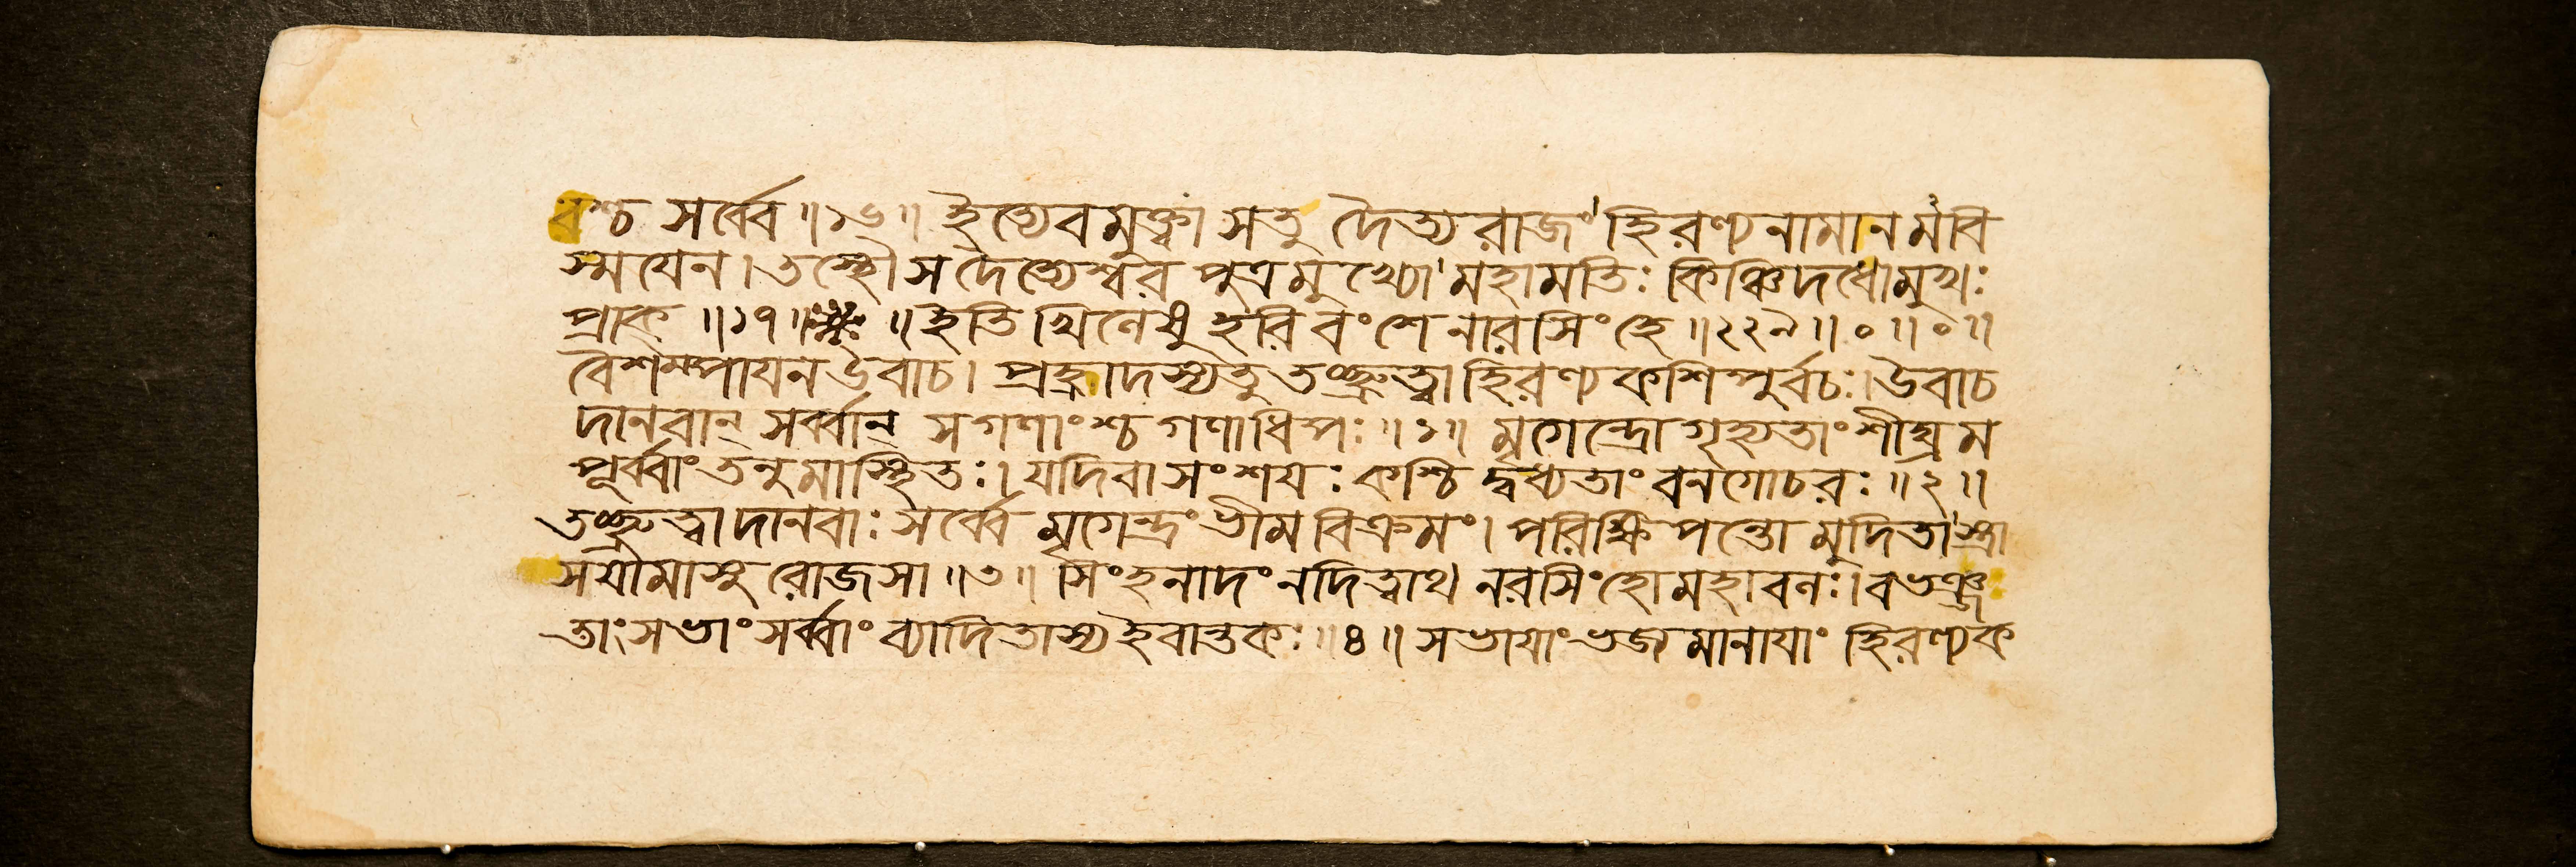 বশ্চ সর্ব্বে ॥১৬॥ ইত্যেবমুক্ত্বা সতু দৈত্যরাজং হিরণ্যনামানমবি
স্ময়েন। তস্থৌ স দৈত্যেশ্বর পুত্রমুখ্যো মহামতিঃ কিঞ্চিদধোমুখঃ
প্রাক ॥১৭॥ ॥ ইতি খিলেষু হরিবংশে নারসিংহে ॥২২৯॥০॥০॥
বৈশম্পায়ন উবাচ। প্রহ্লাদস্যতু তচ্ছ্রুত্বা হিরণ্যকশিপুর্বচঃ। উবাচ
দানবান্ সর্ব্বান্ সগণাংশ্চ গণাধিপঃ ॥১॥ মৃগেন্দ্রো গৃহ্যতাং শীঘ্রম
পূর্ব্বাং তনুমাস্থিতঃ। যদিবা সংশয়ঃ কশ্চি দ্বধ্যতাং বনগোচরঃ ॥২॥
তচ্ছ্রুত্বা দানবাঃ সর্ব্বে মৃগেন্দ্রং ভীমবিক্রমং। পরিক্ষিপন্তো মুদিতাস্ত্রা
সয়ামাসুরোজসা ॥৩॥ সিংহনাদং নদিত্বাথ নরসিংহো মহাবলঃ। বভঞ্জ
তাং সভাং সর্ব্বাং ব্যাদিতাস্য ইবান্তকঃ ॥৪॥ সভায়াং ভজ্যমানায়াং হিরণ্যক